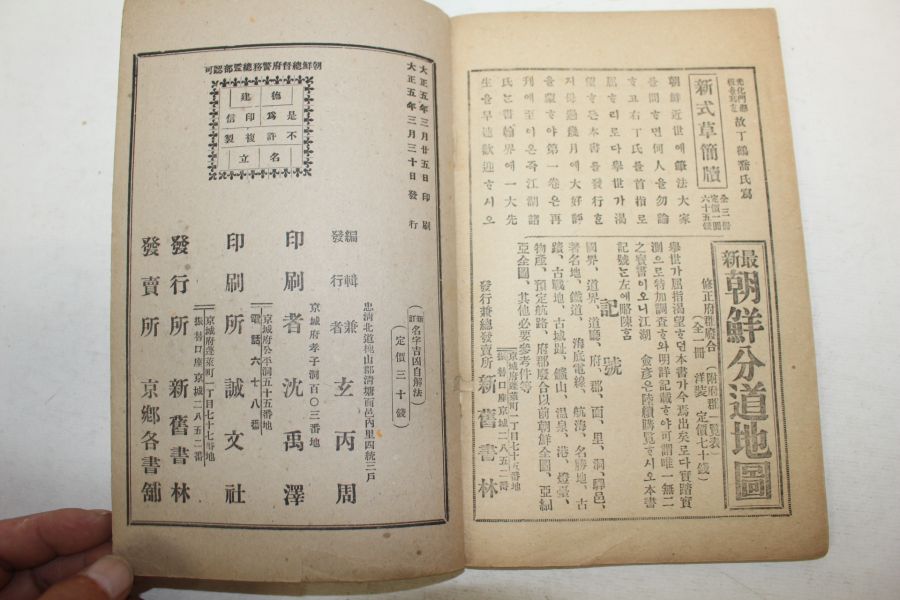 故丁鶴喬氏寫
新式草簡牘
全三冊
定價一圓
六十五錢
朝鮮近世에筆法大家
를問ᄒᆞ면何人을勿論
ᄒᆞ고右丁氏를首指로
屈ᄒᆞ리로다擧世가渴
望ᄒᆞ든本書를發行ᄒᆞᆫ
지毋過幾月에大好評
을蒙ᄒᆞ야第一卷은再
刊에至이온즉江湖諸
氏는書翰界에一大先
生을早速歡迎ᄒᆞ시오
最新
朝鮮分道地圖
修正府郡廢合（附府郡一覽表）
（全一冊 洋裝 定價七十錢）
擧世가屈指渴望ᄒᆞ든本書가今焉出矣로다實踏實
測으로特加調査ᄒᆞ와明詳記載ᄒᆞ야可謂唯一無二
之寶書이오니江湖 僉彦은陸續購覧ᄒᆞ시오本書
記號는左에略陳ᄒᆞᆷ
記號
國界、道界、道廳、府、郡、面、里、洞、驛邑、
著名地、鐵道、海底電線、航海、名勝地、古
蹟、古戰地、古城趾、鐵山、温泉、港、燈臺、
物產、預定航路、府郡廢合以前朝鮮全圖、亞洲
亞全圖、其他必要參考件等
發行兼總發賣所
京城府蓬萊町一丁目七十五番地
振替口座京城二八五二番
新舊書林
大正五年三月廿五日印刷
大正五年三月三十日發行
朝鮮總督府警務總監部認可
德建
是爲印信
不許複製
名立
新訂 名字吉凶自解法
（定價三十錢）
忠淸北道槐山郡淸塘面邑內里四統三戶
編輯兼發行者 玄丙周
京城府孝子洞百〇三番地
印刷者 沈禹澤
京城府公平洞五十五番地
電話六七八番
印刷所 誠文社
京城府蓬萊町一丁目七十七番地
振替口座京城二八五二番
發行所 新舊書林
發賣所 京鄉各書舖